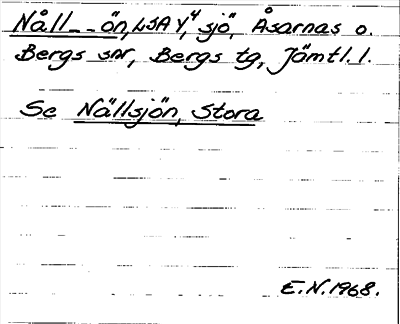 Nåll--ön, LSA Y,4 sjö, Åsarnas o.
Bergs snr, Bergs tg, Jämtl. l.
Se Nällsjön, Stora
E.N. 1968.